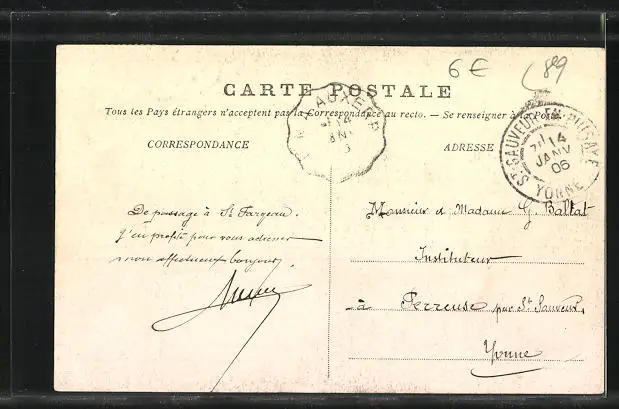 6 € (89
CARTE POSTALE
Tous les Pays étrangers n'acceptent pas la Correspondance au recto. — Se renseigner à la Poste.
CORRESPONDANCE
ADRESSE
AUXERRE
14
JANV
ST SAUVEUR-EN-PUISAYE
14
JANV
06
YONNE
De passage à St Fargeau.
J'en profite pour vous adresser
mon affectueux bonjour.
Monsieur & Madame G Baltat
Instituteur
à Perreuse par St Sauveur,
Yonne